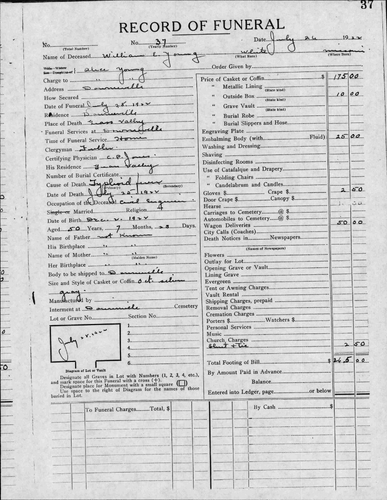 37
RECORD OF FUNERAL
No. 37 Date July 26 1922
(Total Number) (Yearly Number)
Name of Deceased William Young White
(What Race) (What State)
Charge to Alice Young
Order Given by
Address Downieville
How Secured
Date of Funeral July 28, 1922
Residence Downieville
Place of Death Valley
Funeral Services at Downieville
Time of Funeral Service Home
Clergyman Fuller
Certifying Physician C.P. Jones
His Residence Valley
Number of Burial Certificate
Cause of Death Typhoid fever
Date of Death July 1922
Occupation of the Deceased Civil Engineer
Single or Married Religion
Date of Birth Dec 2, 19
Aged 50 Years, 7 Months, 23 Days.
Name of Father not Known
His Birthplace " "
Name of Mother " "
(Maiden Name)
Her Birthplace "
Body to be shipped to Downieville
Size and Style of Casket or Coffin silver
gray
Manufactured by
Interment at Downieville Cemetery
Lot or Grave No. Section No.
July 28, 1922
1.
2.
3.
4.
5.
6.
7.
8.
Diagram of Lot or Vault
Designate all Graves in Lot with Numbers (1, 2, 3, 4, etc.),
and mark space for this Funeral with a cross (+).
Designate place for Monument with a small square
Use space to the right of Diagram for the names of those
buried in Lot.
Price of Casket or Coffin $ 175 00
" Metallic Lining
" Outside Box 10 00
" Grave Vault
" Burial Robe
" Burial Slippers and Hose
Engraving Plate
Embalming Body (with Fluid) 25 00
Washing and Dressing
Shaving
Disinfecting Rooms
Use of Catafalque and Drapery
" Folding Chairs
" Candelabrum and Candles
Gloves $ Crape $ 2 50
Door Crape $ Canopy $
Hearse
Carriages to Cemetery @ $
Automobiles to Cemetery @ $
Wagon Deliveries 50 00
City Calls (Coaches)
Death Notices in Newspapers
(Names of Newspapers)
Flowers
Outlay for Lot
Opening Grave or Vault
Lining Grave
Evergreen
Tent or Awning Charges
Vault Rental
Shipping Charges, prepaid
Removal Charges
Cremation Charges
Porters $ Watchers $
Personal Services
Music
Church Charges
Shirt + Tie 2 50
Total Footing of Bill $ 265 00
By Amount Paid in Advance
Balance
Entered into Ledger, page or below
To Funeral Charges, Total $
By Cash $